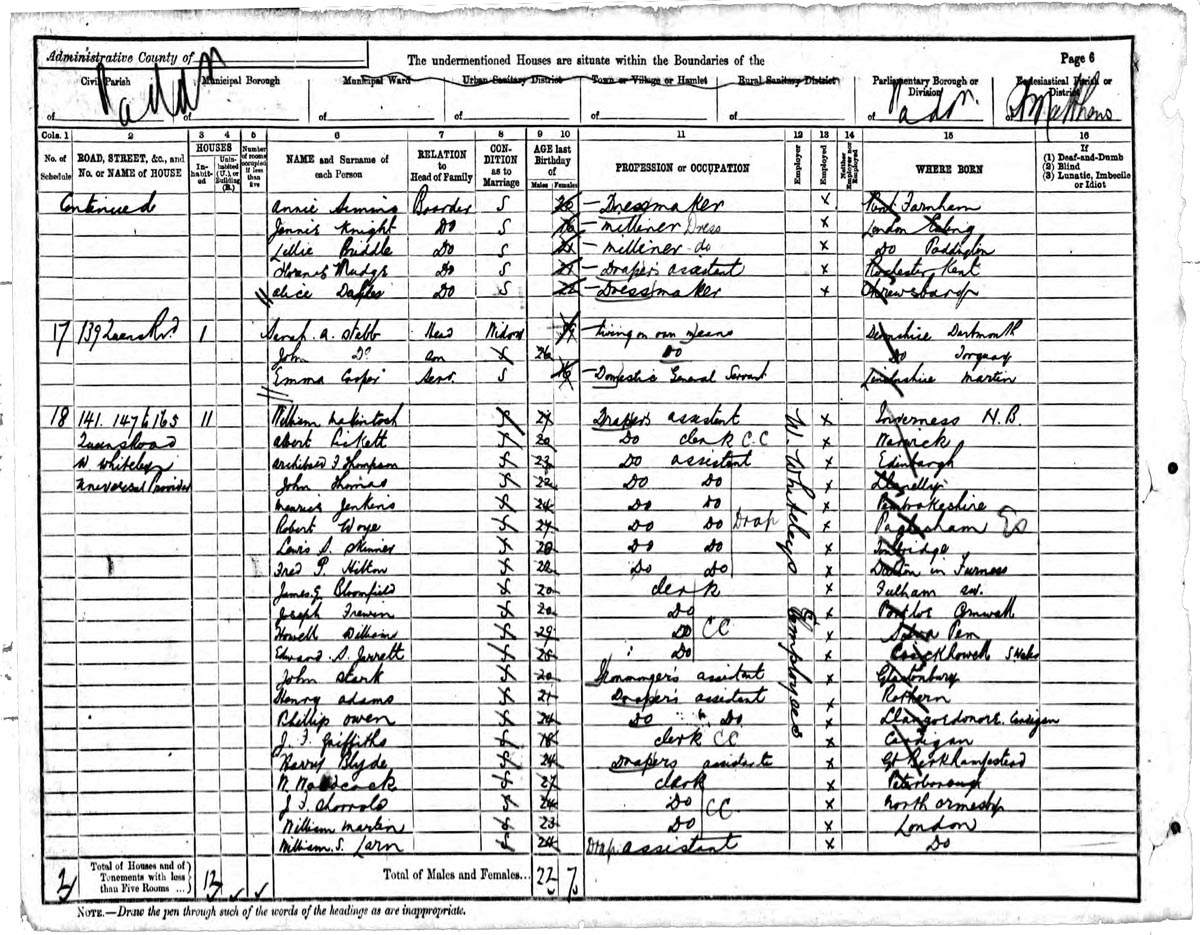 Administrative County of
The undermentioned Houses are situate within the Boundaries of the
Page 6
Civil Parish Municipal Borough Municipal Ward Urban Sanitary District Town or Village or Hamlet Rural Sanitary District Parliamentary Borough or Division Ecclesiastical Parish or District
of of of of of of of Padn. of St Matthews
Cols. 1 2 3 4 5 6 7 8 9 10 11 12 13 14 15 16
No. of Schedule ROAD, STREET, &c., and No. or NAME of HOUSE HOUSES Inhabited Uninhabited (U.) or Building (B.) Number of rooms occupied if less than five NAME and Surname of each Person RELATION to Head of Family CONDITION as to Marriage AGE last Birthday of Males Females PROFESSION or OCCUPATION Employer Employed Neither Employer nor Employed WHERE BORN If (1) Deaf-and-Dumb (2) Blind (3) Lunatic, Imbecile or Idiot
Continued Annie Simins Boarder S 26 – Dressmaker x Farnham
Jennie Knight Do S 16 – milliner Dress x London Ealing
Lillie Briddle Do S 21 – milliner do x Do Paddington
Mudge Do S 21 – Drapers assistent x Rochester Kent
alice Do S – Dressmaker x
17 139 Queens Rd. 1 Sarah. A. Stebb Head Widow – Living on own means Devonshire Dartmouth
John Do son x 26 Do Do Torquay
Emma Cooper Serv. S 16 – Domestic General Servant Lincolnshire Martin
18 141. 147 to 165 11 William Makintosh x 21 Drapers assistent x Inverness N.B.
Queens Road albert x 20 Do clerk C.C x Warwick
W Whiteley archibald T Thompson x 23 Do assistent x Edinburgh
Universal Provider John Thomas x 22 Do Do x Llanelly
Jenkins x 24 Do Do x Pembrokeshire
Robert Woye x 24 Do Do Drap x Paglesham Es
Lewis S. Skinner x 20 Do Do x Tonbridge
Fred P. Hilton x 22 Do Do x Dalton in Furness
W. Whiteleys Employees
James G. Bloomfield x 20 clerk x Fulham sw.
Joseph Trewin x 20 Do x Cornwall
Howell William x 29 Do CC x Pem
Edward S. Jarrett x 28 Do x Crickhowell S Wales
John Stark x 20 Ironmonger's assistent x Glastonbury
Henry adams x 21 Draper's assistent x
Phillip Owen x 24 Do Do x Cardigan
J. T. Griffiths x 18 clerk CC x Cardigan
Harry Blyde x 24 Drapers assistente x Gt Berkhampstead
x 27 clerk x Peterborough
J. T. x 24 Do CC x North Ormesby
William Martin x 23 Do x London
William. S. Larn x 24 Drap. assistent x Do
2 Total of Houses and of Tenements with less than Five Rooms ... 12 Total of Males and Females... 22 7
NOTE.—Draw the pen through such of the words of the headings as are inappropriate.